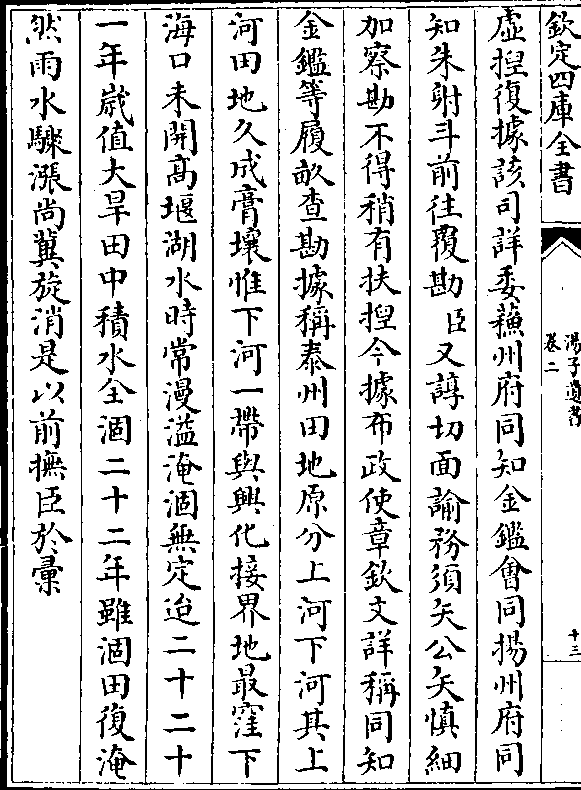 欽定四庫全書
湯子遺書
卷二
十三
虛揑復據該司詳委蘇州府同知金鑑會同揚州府同
知朱射斗前往覆勘臣又諄切面諭務須矢公矢慎細
加察勘不得稍有扶揑今據布政使章欽文詳稱同知
金鑑等履畝查勘據稱泰州田地原分上河下河其上
河田地久成膏壤惟下河一帶與興化接界地最窪下
海口未開高堰湖水時常漫溢淹涸無定迨二十二十
一年歲值大旱田中積水全涸二十二年雖涸田復淹
然雨水驟漲尚冀旋消是以前撫臣於彙